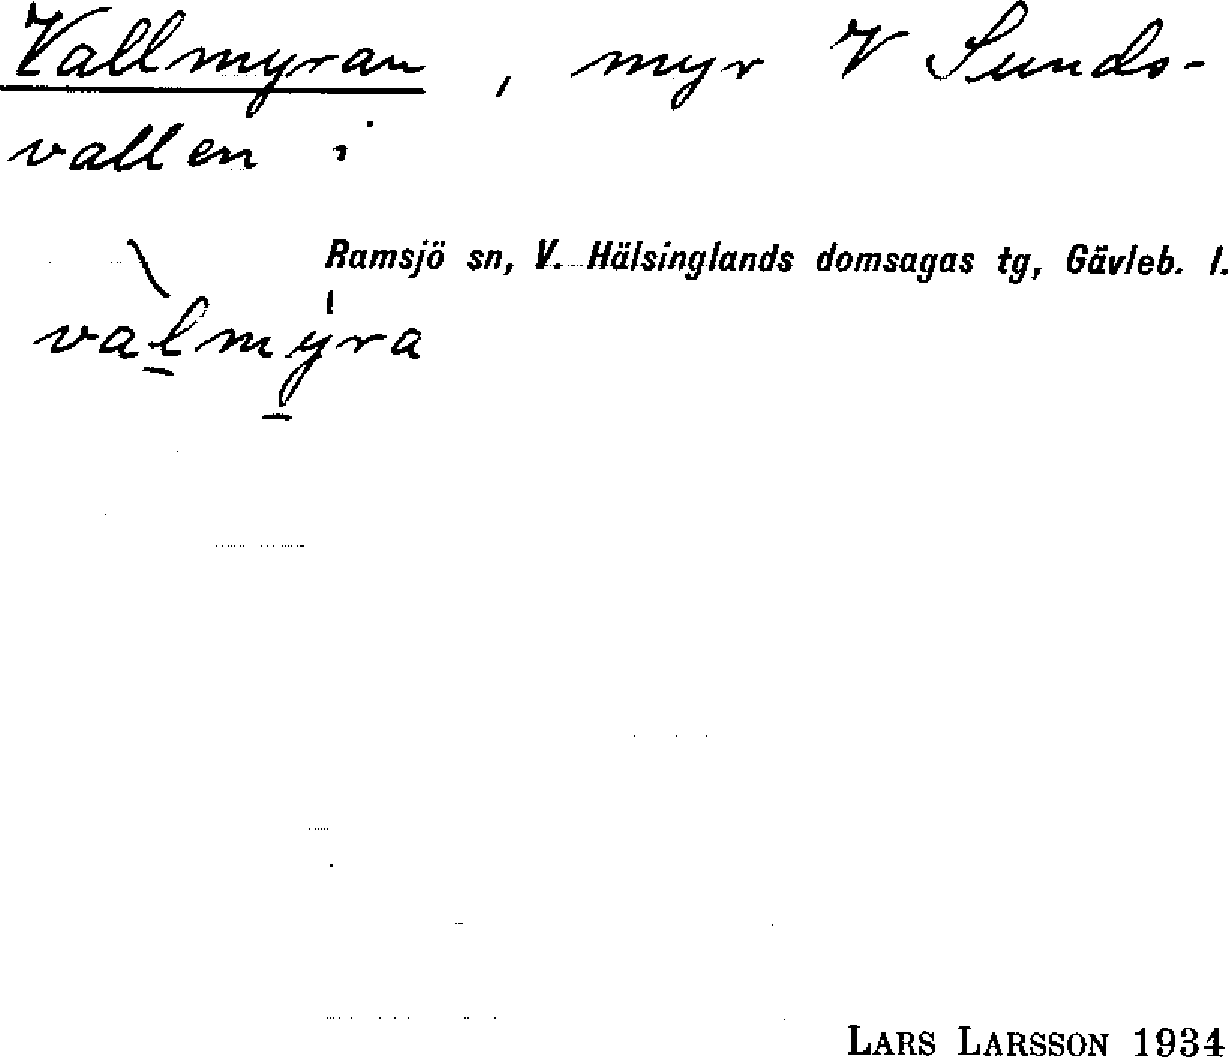 Vallmyran, myr V Sunds-
vallen i
Ramsjö sn, V. Hälsinglands domsagas tg, Gävleb. l.
va̲l̀mý̲ra
LARS LARSSON 1934